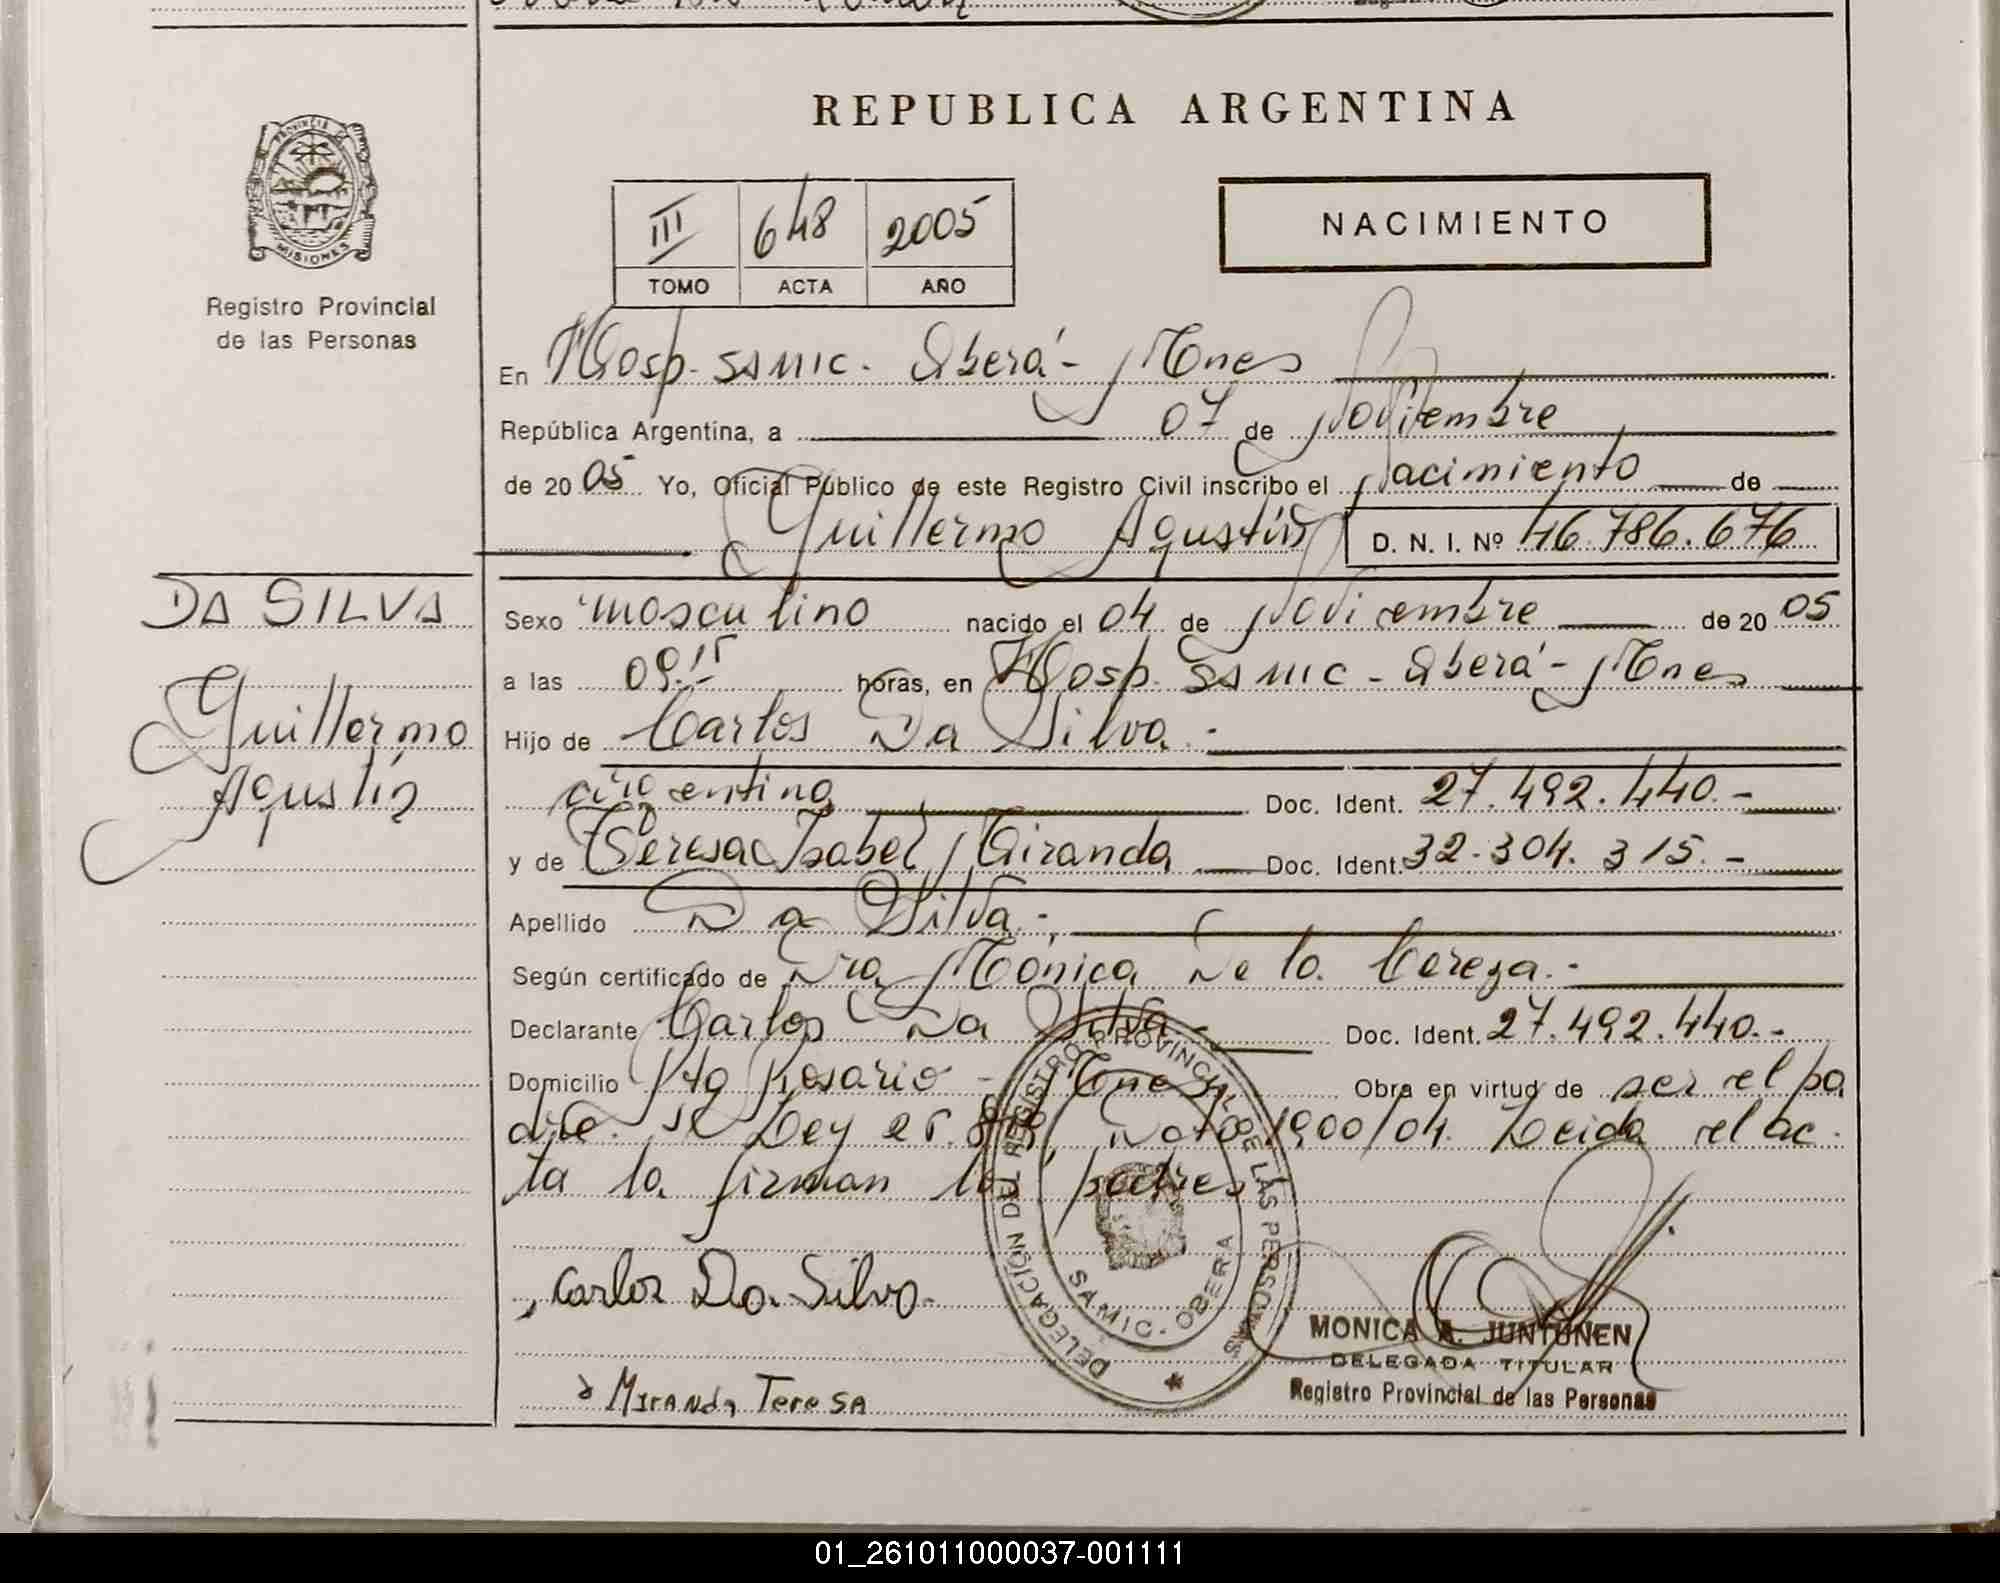 REPUBLICA ARGENTINA
PROVINCIA
MISIONES
Registro Provincial
de las Personas
III 648 2005
TOMO ACTA AÑO
NACIMIENTO
En Hosp. SAMIC. Oberá - Mnes
República Argentina, a 07 de Noviembre
de 2005 Yo, Oficial Público de este Registro Civil inscribo el Nacimiento de
Guillermo Agustín D. N. I. Nº 46.786.676
DA SILVA
Guillermo
Agustín
Sexo masculino nacido el 04 de Noviembre de 2005
a las 09:15 horas, en Hosp. SAMIC - Oberá - Mnes
Hijo de Carlos Da Silva.-
argentino Doc. Ident. 27.492.440.-
y de Teresa Isabel Miranda Doc. Ident. 32.304.315.-
Apellido Da Silva.-
Según certificado de Dra Mónica De la Cereza.-
Declarante Carlos Da Silva.- Doc. Ident. 27.492.440.-
Domicilio Pto Rosario - Mnes Obra en virtud de ser el pa
dre. Ley 25. 1900/04. Leida el ac-
ta la firman los padres
Carlos Da Silva.
Miranda Teresa
DELEGACIÓN DEL REGISTRO PROVINCIAL DE LAS PERSONAS
SAMIC - OBERA
MONICA A. JUNTUNEN
DELEGADA TITULAR
Registro Provincial de las Personas
01_261011000037-001111